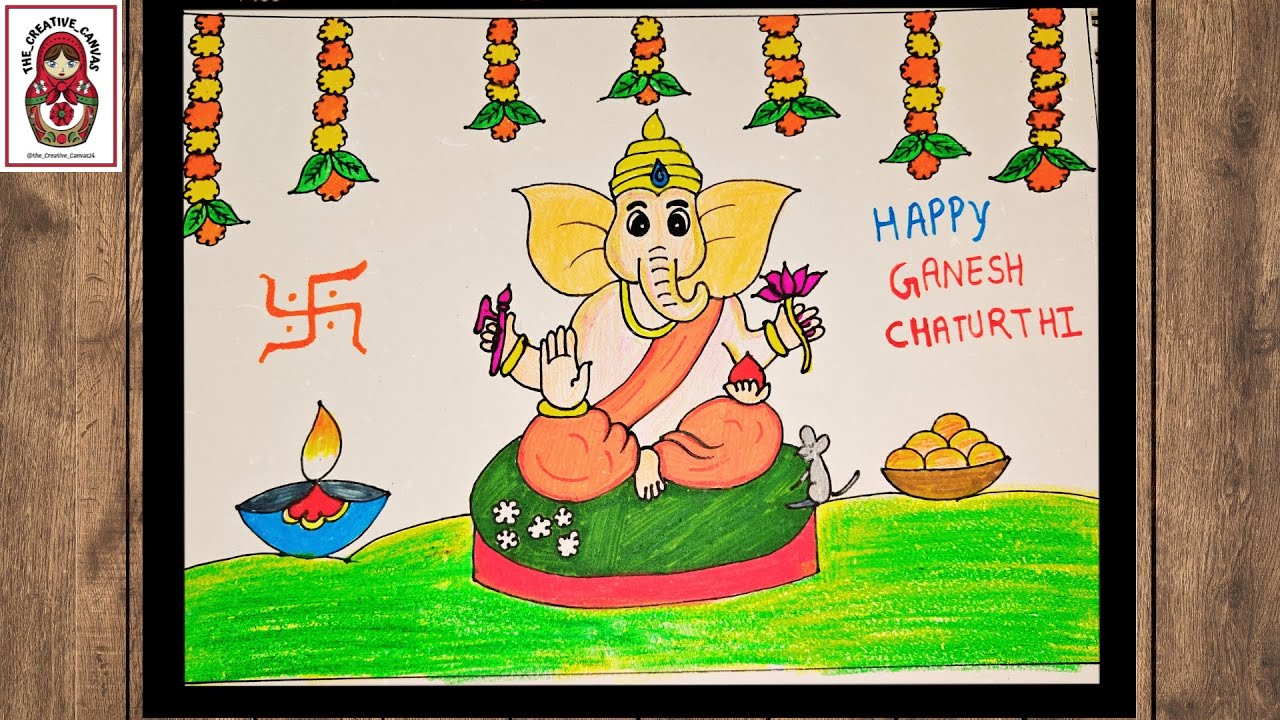 THE_CREATIVE_CANVAS
@the_Creative_Canvas24
HAPPY
GANESH
CHATURTHI